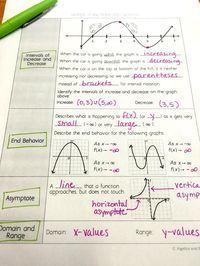 Intervals of
Increase and
Decrease
When the car is going uphill, the graph is increasing.
When the car is going downhill, the graph is decreasing.
When the car is on the top or bottom of the hill, it is neither
increasing nor decreasing, so we use parentheses
instead of brackets for interval notation.
Identify the intervals of increase and decrease on the graph
above.
Increase: (0,3)∪(5,∞) Decrease: (3,5)
End Behavior
Describes what is happening to f(x) (or y) as x gets very
small (-∞) or very large (∞).
Describe the end behavior for the following graphs.
As x→∞
f(x)→ -∞
As x→-∞
f(x)→ -∞
As x→∞
As x→-∞
Asymptote
A line that a function
approaches, but does not touch.
horizontal
asymptote
vertica
asymp
Domain and
Range
Domain: x-values
Range: y-values